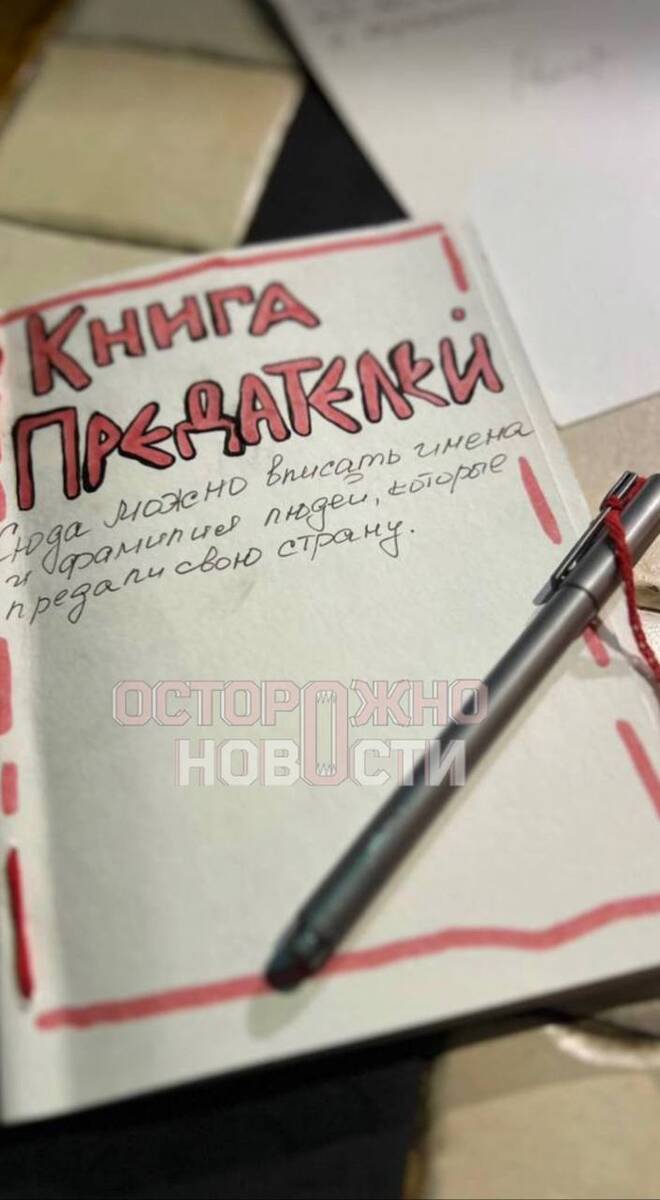 Книга
Предателей
Сюда можно вписать имена
и фамилия людей, которые
предали свою страну.
ОСТОРОЖНО
НОВОСТИ